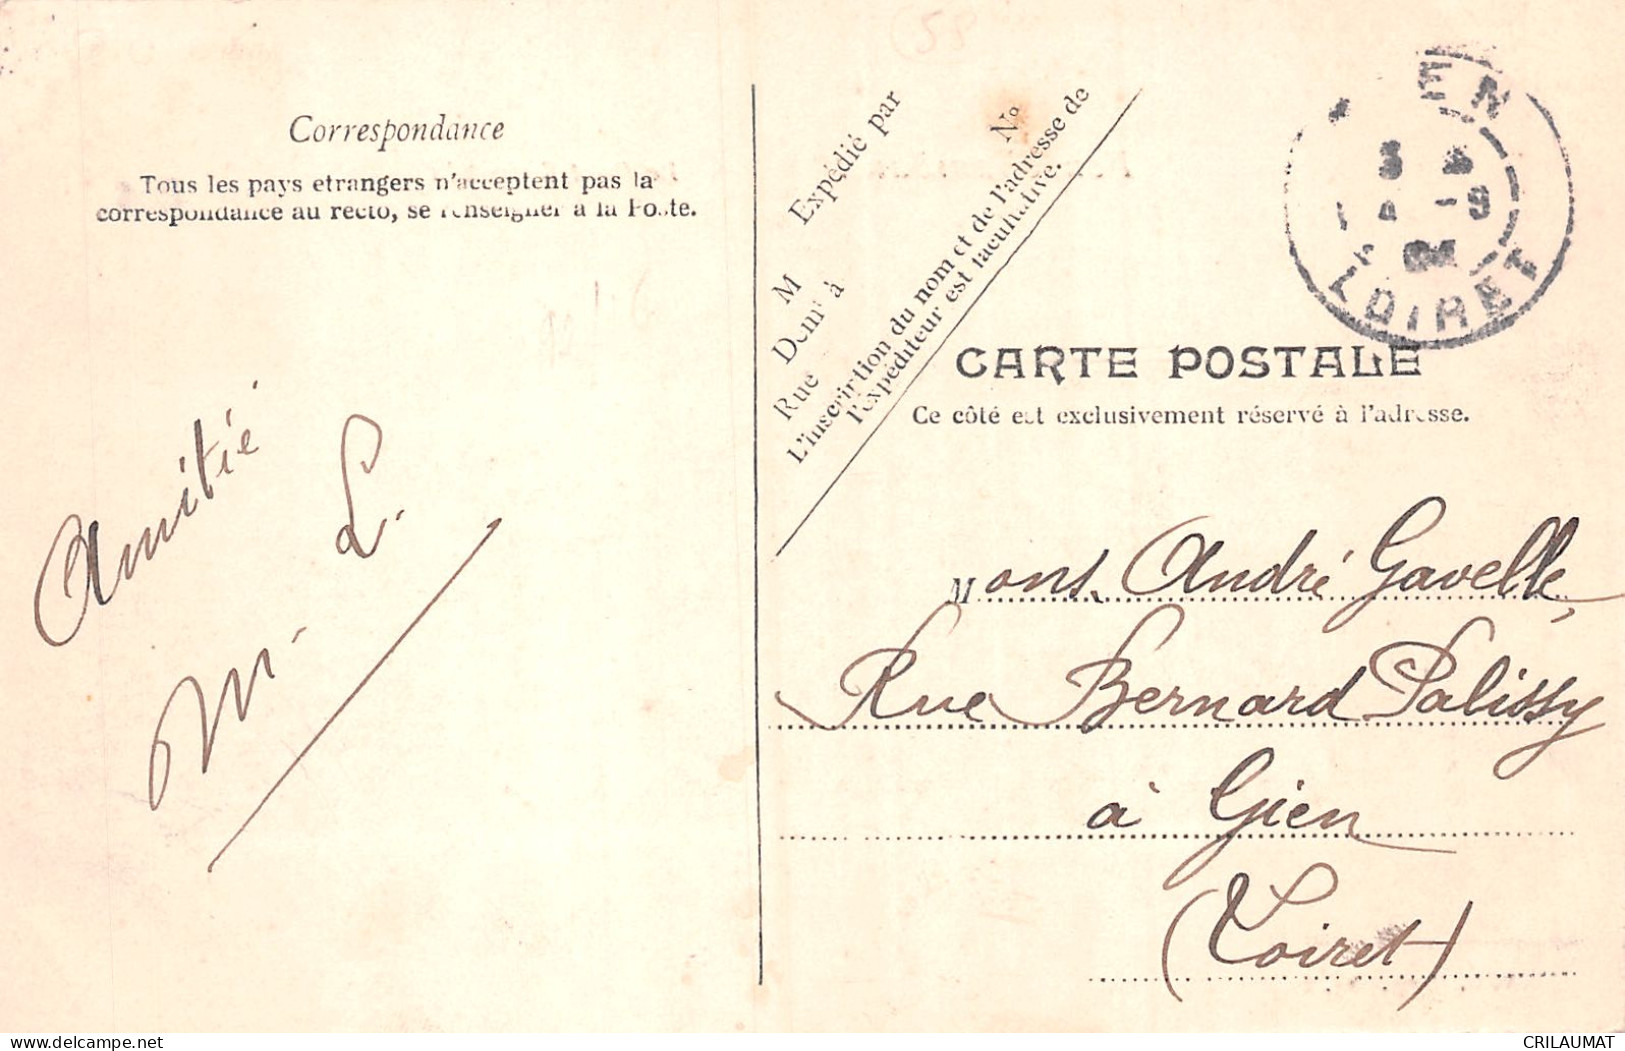 Correspondance
Tous les pays etrangers n'acceptent pas la
correspondance au recto, se renseigner à la Poste.
Amitié
M. L.
58
Expédié par
M
Demt à
Rue
No
L'inscription du nom et de l'adresse de
l'expéditeur est facultative.
EN
4 -9
LOIRET
CARTE POSTALE
Ce côté est exclusivement réservé à l'adresse.
Mons. André Gavelle,
Rue Bernard Palissy
à Gien
(Loiret)
CRILAUMAT